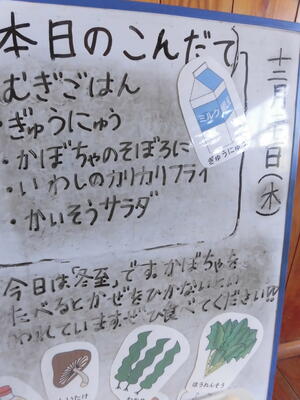 本日のこんだて
むぎごはん
・ぎゅうにゅう
・かぼちゃのそぼろに
・いわしのカリカリフライ
・かいそうサラダ
(木)
ミルク
ぎゅうにゅう
今日は「冬至」です。かぼちゃを
たべるとかぜをひかないとい
われています。ぜひ食べてください!!
しいたけ
わかめ
ほうれんそう